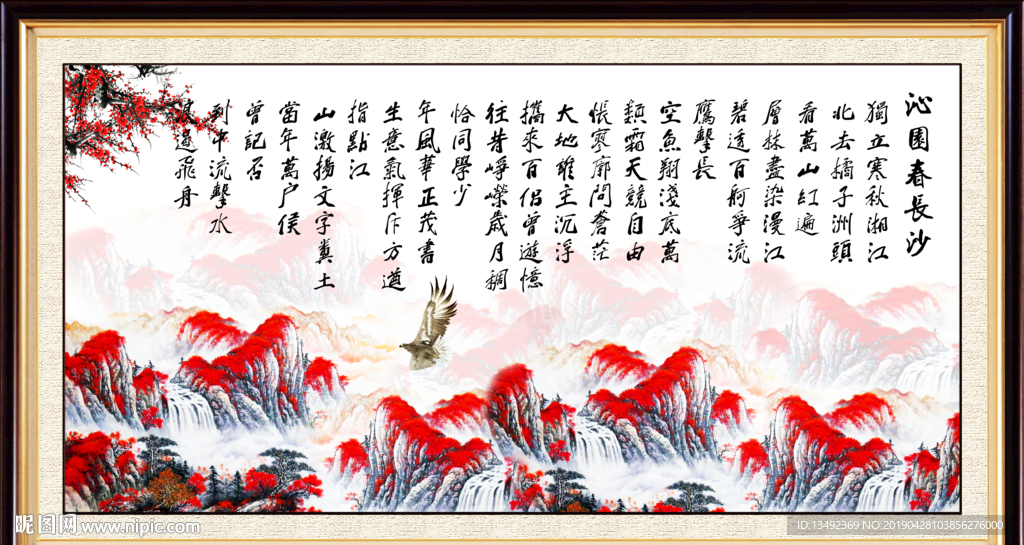 沁園春長沙
獨立寒秋湘江
北去橘子洲頭
看萬山紅遍
層林盡染漫江
碧透百舸爭流
鷹擊長
空魚翔淺底萬
類霜天競自由
悵寥廓問蒼茫
大地誰主沉浮
攜來百侶曾遊憶
往昔崢嶸歲月稠
恰同學少
年風華正茂書
生意氣揮斥方遒
指點江
山激揚文字糞土
當年萬户侯
曾記否
到中流擊水
浪遏飛舟
昵图网 www.nipic.com
ID:13492369 NO:20190428103856276000